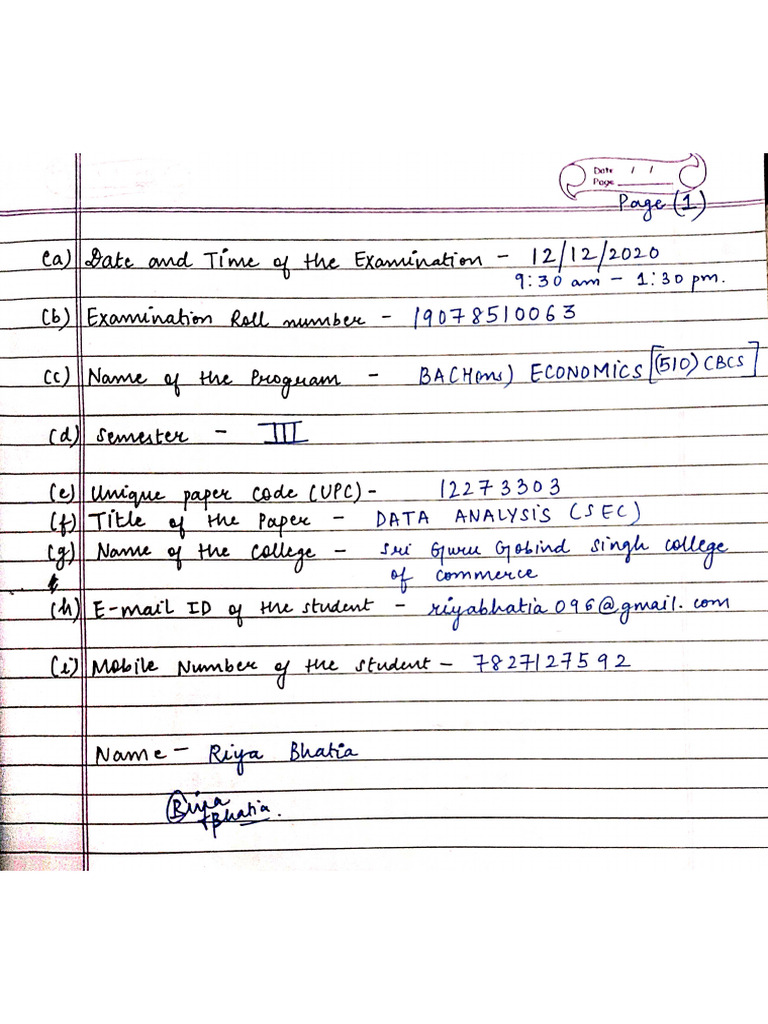 Date / /
Page
Page (1)
(a) Date and Time of the Examination - 12/12/2020
9:30 am - 1:30 pm.
(b) Examination Roll number - 19078510063
(c) Name of the Program - BA(H(ons) ECONOMICS [(510) CBCS]
(d) Semester - III
(e) Unique paper code (UPC) - 12273303
(f) Title of the Paper - DATA ANALYSIS (SEC)
(g) Name of the college - Sri Guru Gobind Singh college
of commerce
(h) E-mail ID of the student - riyabhatia096@gmail.com
(i) Mobile Number of the student - 7827127592
Name - Riya Bhatia
Riya
Bhatia.